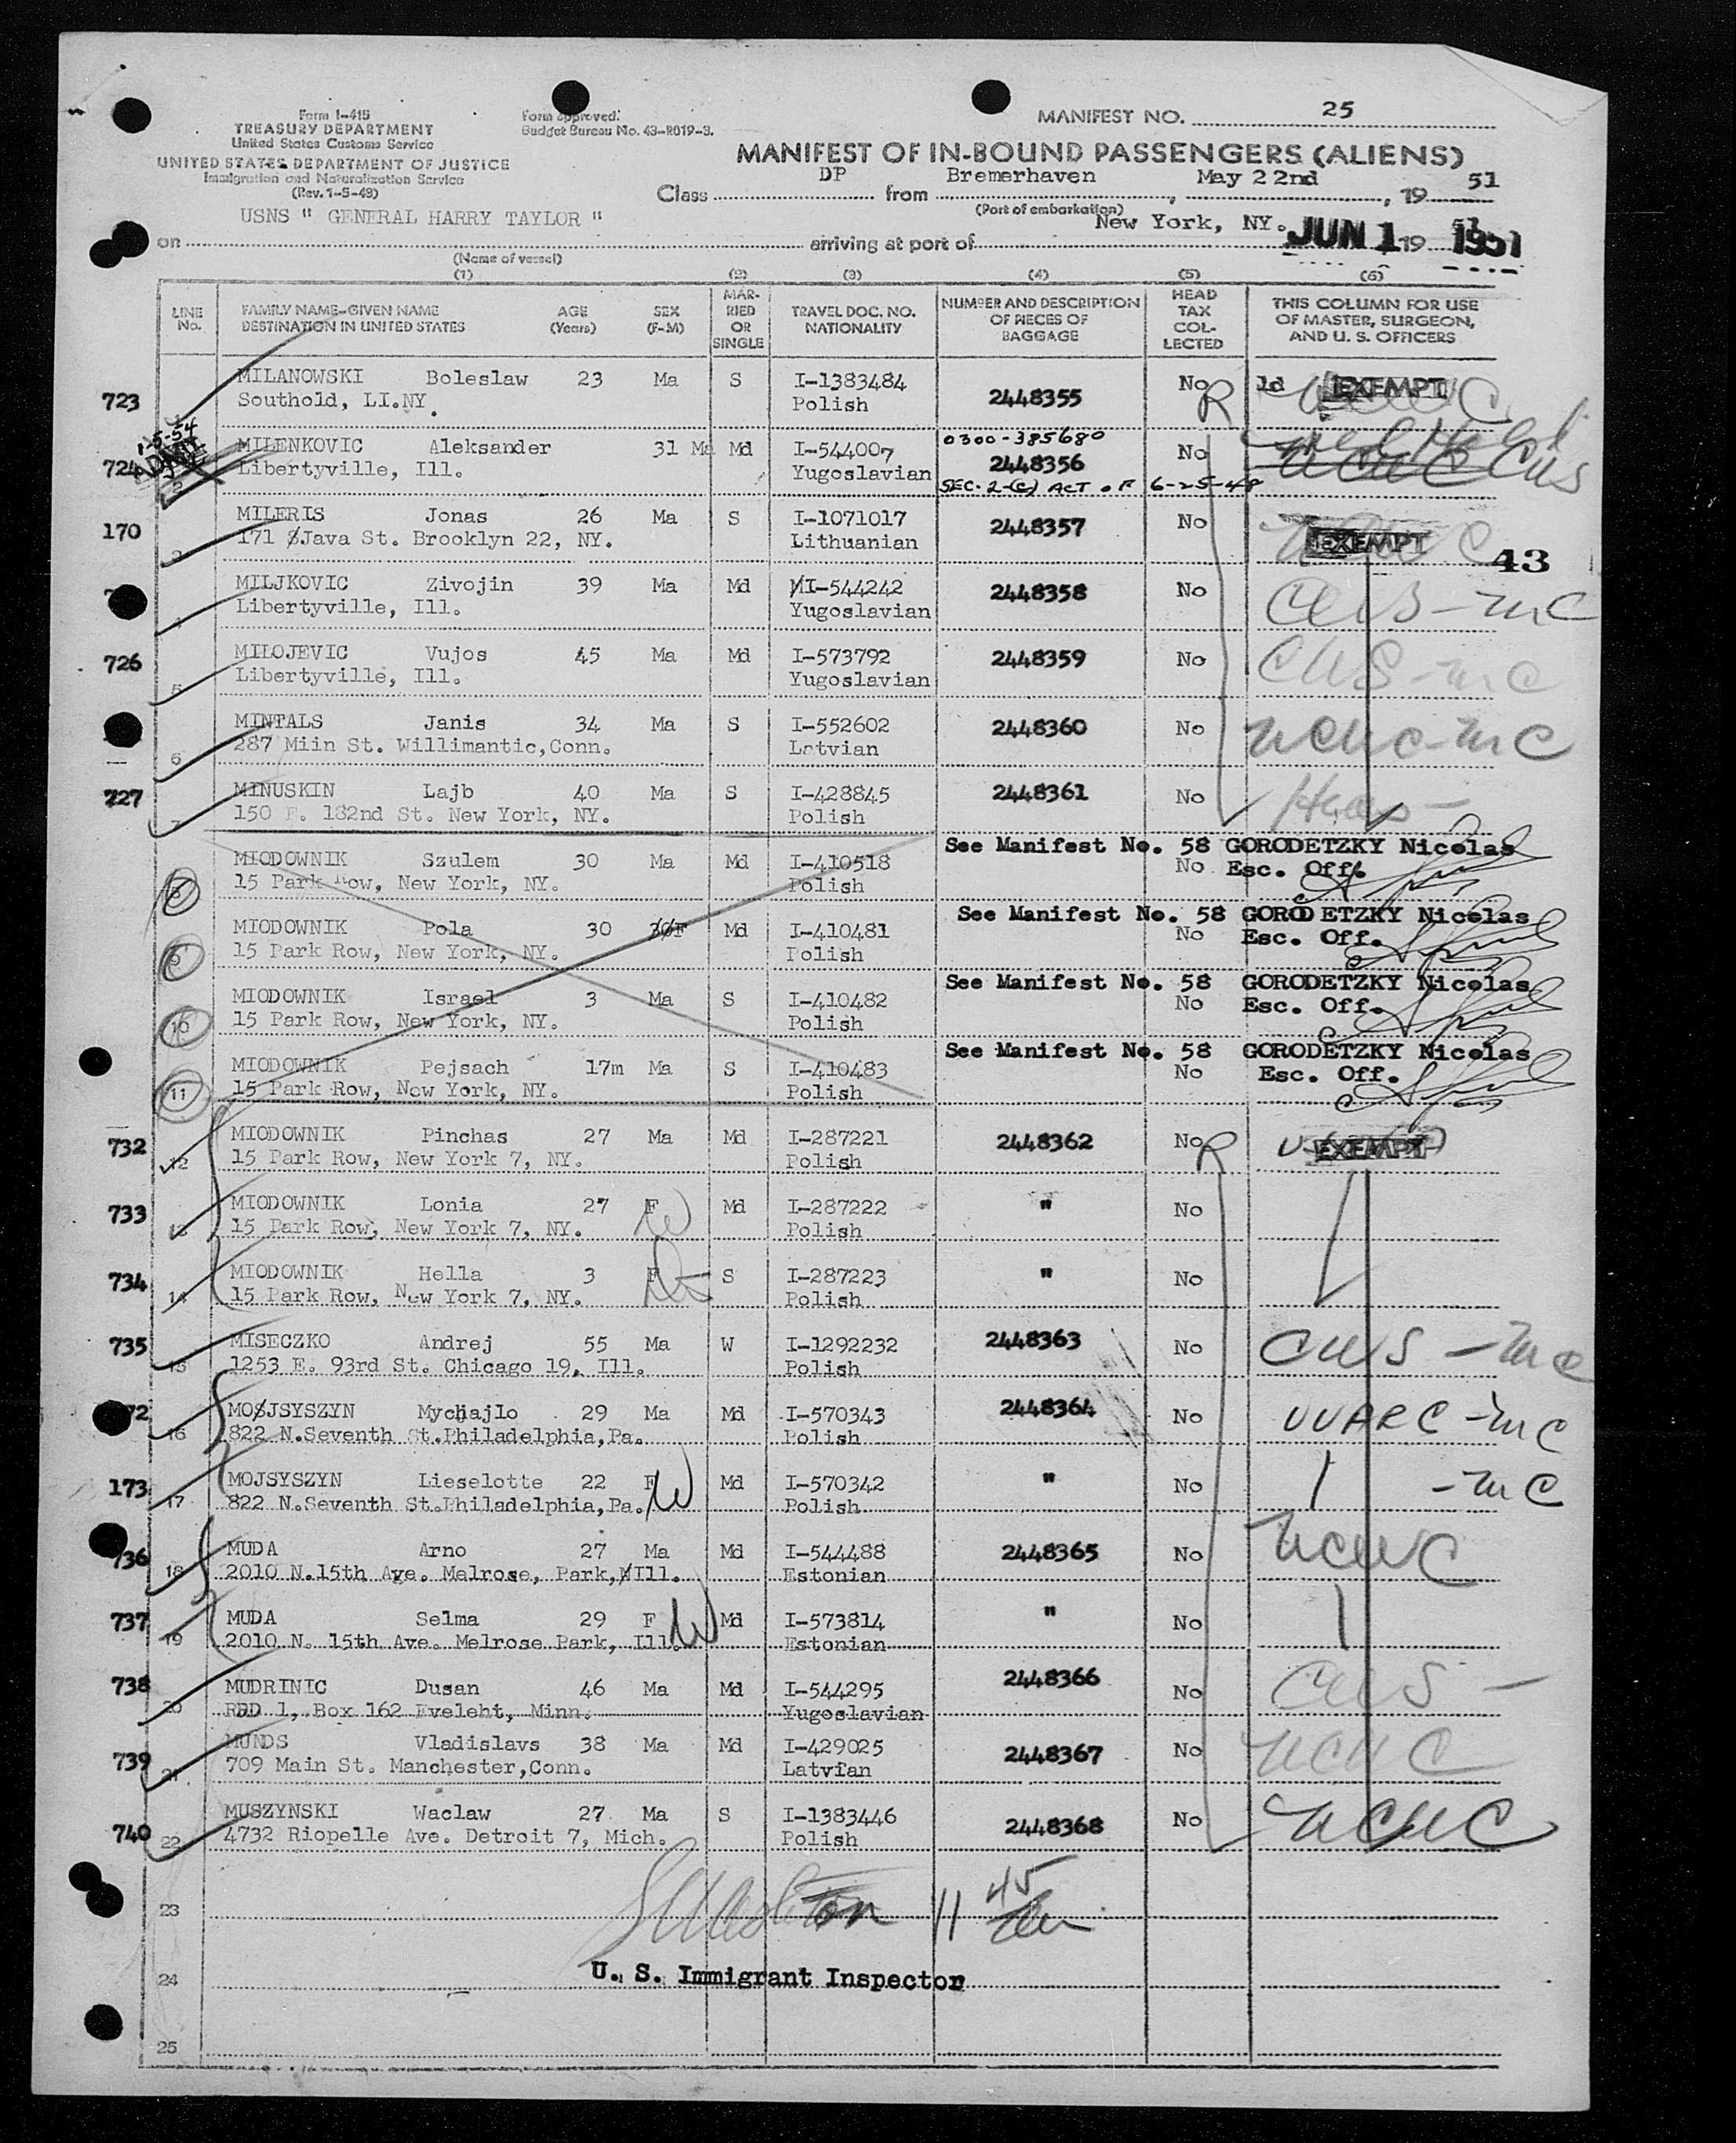 Form I-415
TREASURY DEPARTMENT
United States Customs Service
UNITED STATES DEPARTMENT OF JUSTICE
Immigration and Naturalization Service
(Rev. 1-5-49)
Form approved.
Budget Bureau No. 43-R019-3.
MANIFEST NO. 25
MANIFEST OF IN-BOUND PASSENGERS (ALIENS)
Class DP from Bremerhaven, May 22nd, 19 51
(Port of embarkation)
on USNS " GENERAL HARRY TAYLOR " arriving at port of New York, NY. JUN 1 19 1951
(Name of vessel)
(1) (2) (3) (4) (5) (6)
LINE No.
FAMILY NAME-GIVEN NAME AGE SEX
DESTINATION IN UNITED STATES (Years) (F-M)
MAR-RIED OR SINGLE
TRAVEL DOC. NO. NATIONALITY
NUMBER AND DESCRIPTION OF PIECES OF BAGGAGE
HEAD TAX COL-LECTED
THIS COLUMN FOR USE OF MASTER, SURGEON, AND U. S. OFFICERS
723 MILANOWSKI Boleslaw 23 Ma S I-1383484 2448355 No R 1d EXEMPT
Southold, LI.NY. Polish
1-5-54 0300-385680
724 MILENKOVIC Aleksander 31 Ma Md I-544007 2448356 No CWS
Libertyville, Ill. Yugoslavian SEC. 2-(C) ACT OF 6-25-48
170 MILERIS Jonas 26 Ma S I-1071017 2448357 No EXEMPT 43
3 171 Java St. Brooklyn 22, NY. Lithuanian
MILJKOVIC Zivojin 39 Ma Md I-544242 2448358 No CWS-mC
4 Libertyville, Ill. Yugoslavian
726 MILOJEVIC Vujos 45 Ma Md I-573792 2448359 No CWS-mC
5 Libertyville, Ill. Yugoslavian
MINTALS Janis 34 Ma S I-552602 2448360 No NCWC-mC
6 287 Miin St. Willimantic,Conn. Latvian
727 MINUSKIN Lajb 40 Ma S I-428845 2448361 No Hias
7 150 E. 182nd St. New York, NY. Polish
MIODOWNIK Szulem 30 Ma Md I-410518 See Manifest No. 58 GORODETZKY Nicolas
8 15 Park Row, New York, NY. Polish No Esc. Off.
MIODOWNIK Pola 30 F Md I-410481 See Manifest No. 58 GORODETZKY Nicolas
9 15 Park Row, New York, NY. Polish No Esc. Off.
MIODOWNIK Israel 3 Ma S I-410482 See Manifest No. 58 GORODETZKY Nicolas
10 15 Park Row, New York, NY. Polish No Esc. Off.
MIODOWNIK Pejsach 17m Ma S I-410483 See Manifest No. 58 GORODETZKY Nicolas
11 15 Park Row, New York, NY. Polish No Esc. Off.
732 MIODOWNIK Pinchas 27 Ma Md I-287221 2448362 No R EXEMPT
12 15 Park Row, New York 7, NY. Polish
733 MIODOWNIK Lonia 27 F W Md I-287222 " No
13 15 Park Row, New York 7, NY. Polish
734 MIODOWNIK Hella 3 F S I-287223 " No
14 15 Park Row, New York 7, NY. Polish
735 MISECZKO Andrej 55 Ma W I-1292232 2448363 No CWS-mC
15 1253 E. 93rd St. Chicago 19, Ill. Polish
172 MOJSYSZYN Mychajlo 29 Ma Md I-570343 2448364 No UUARC-mC
16 822 N.Seventh St.Philadelphia,Pa. Polish
173 MOJSYSZYN Lieselotte 22 F W Md I-570342 " No -mC
17 822 N.Seventh St.Philadelphia,Pa. Polish
736 MUDA Arno 27 Ma Md I-544488 2448365 No NCWC
18 2010 N.15th Ave. Melrose, Park, Ill. Estonian
737 MUDA Selma 29 F W Md I-573814 " No
19 2010 N. 15th Ave. Melrose Park, Ill. Estonian
738 MUDRINIC Dusan 46 Ma Md I-544295 2448366 No CWS -
20 RDD 1, Box 162 Eveleht, Minn. Yugoslavian
739 MUNDS Vladislavs 38 Ma Md I-429025 2448367 No NCWC
21 709 Main St. Manchester,Conn. Latvian
740 MUSZYNSKI Waclaw 27 Ma S I-1383446 2448368 No NCWC
22 4732 Riopelle Ave. Detroit 7, Mich. Polish
23 11 45
24 U. S. Immigrant Inspector
25